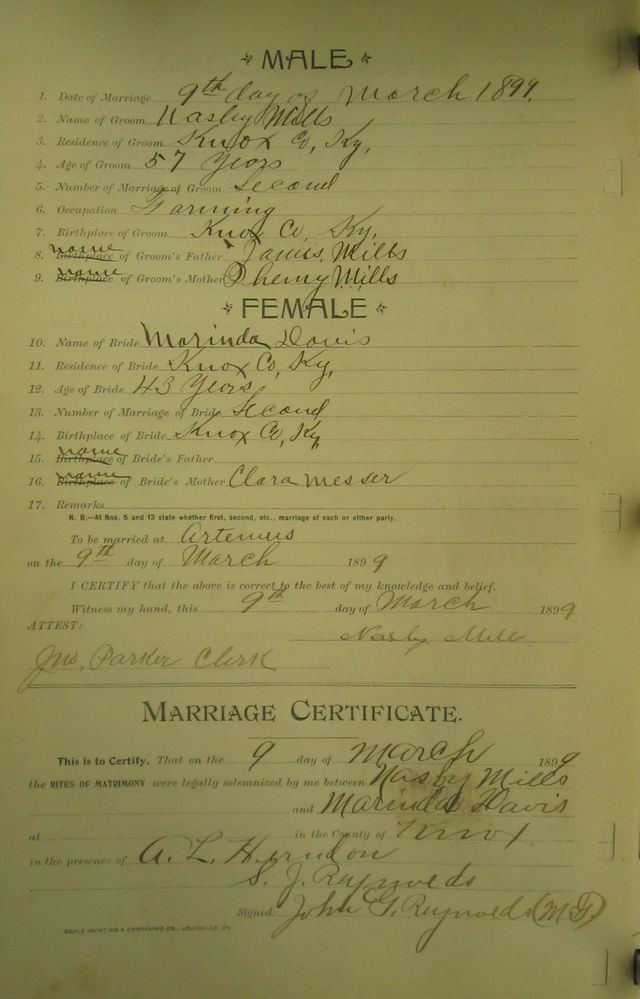 MALE
1. Date of Marriage 9th day of March 1899.
2. Name of Groom Nasby Mills
3. Residence of Groom Knox Co, Ky,
4. Age of Groom 57 Years
5. Number of Marriage of Groom Second
6. Occupation Farming
7. Birthplace of Groom Knox Co, Ky.
8. Birthplace name of Groom's Father James Mills
9. Birthplace name of Groom's Mother Pheny Mills
FEMALE
10. Name of Bride Marinda Davis
11. Residence of Bride Knox Co, Ky,
12. Age of Bride 43 Years,
13. Number of Marriage of Bride Second
14. Birthplace of Bride Knox Co, Ky
15. Birthplace name of Bride's Father
16. Birthplace name of Bride's Mother Clara Messer
17. Remarks
N. B.—At Nos. 5 and 13 state whether first, second, etc., marriage of each or either party.
To be married at Artemus
on the 9th day of March 1899
I CERTIFY that the above is correct to the best of my knowledge and belief.
Witness my hand, this 9th day of March 1899
ATTEST:
Nasby Mill
Jno, Parker Clerk
MARRIAGE CERTIFICATE.
This is to Certify, That on the 9 day of March 1899
the RITES OF MATRIMONY were legally solemnized by me between Nasby Mills
and Marinda Davis
at in the County of Knox
in the presence of A. L. Herndon
S. J. Reynolds
Signed: John G. Reynolds (MG)
PRINTING & ENGRAVING CO., LOUISVILLE, KY.